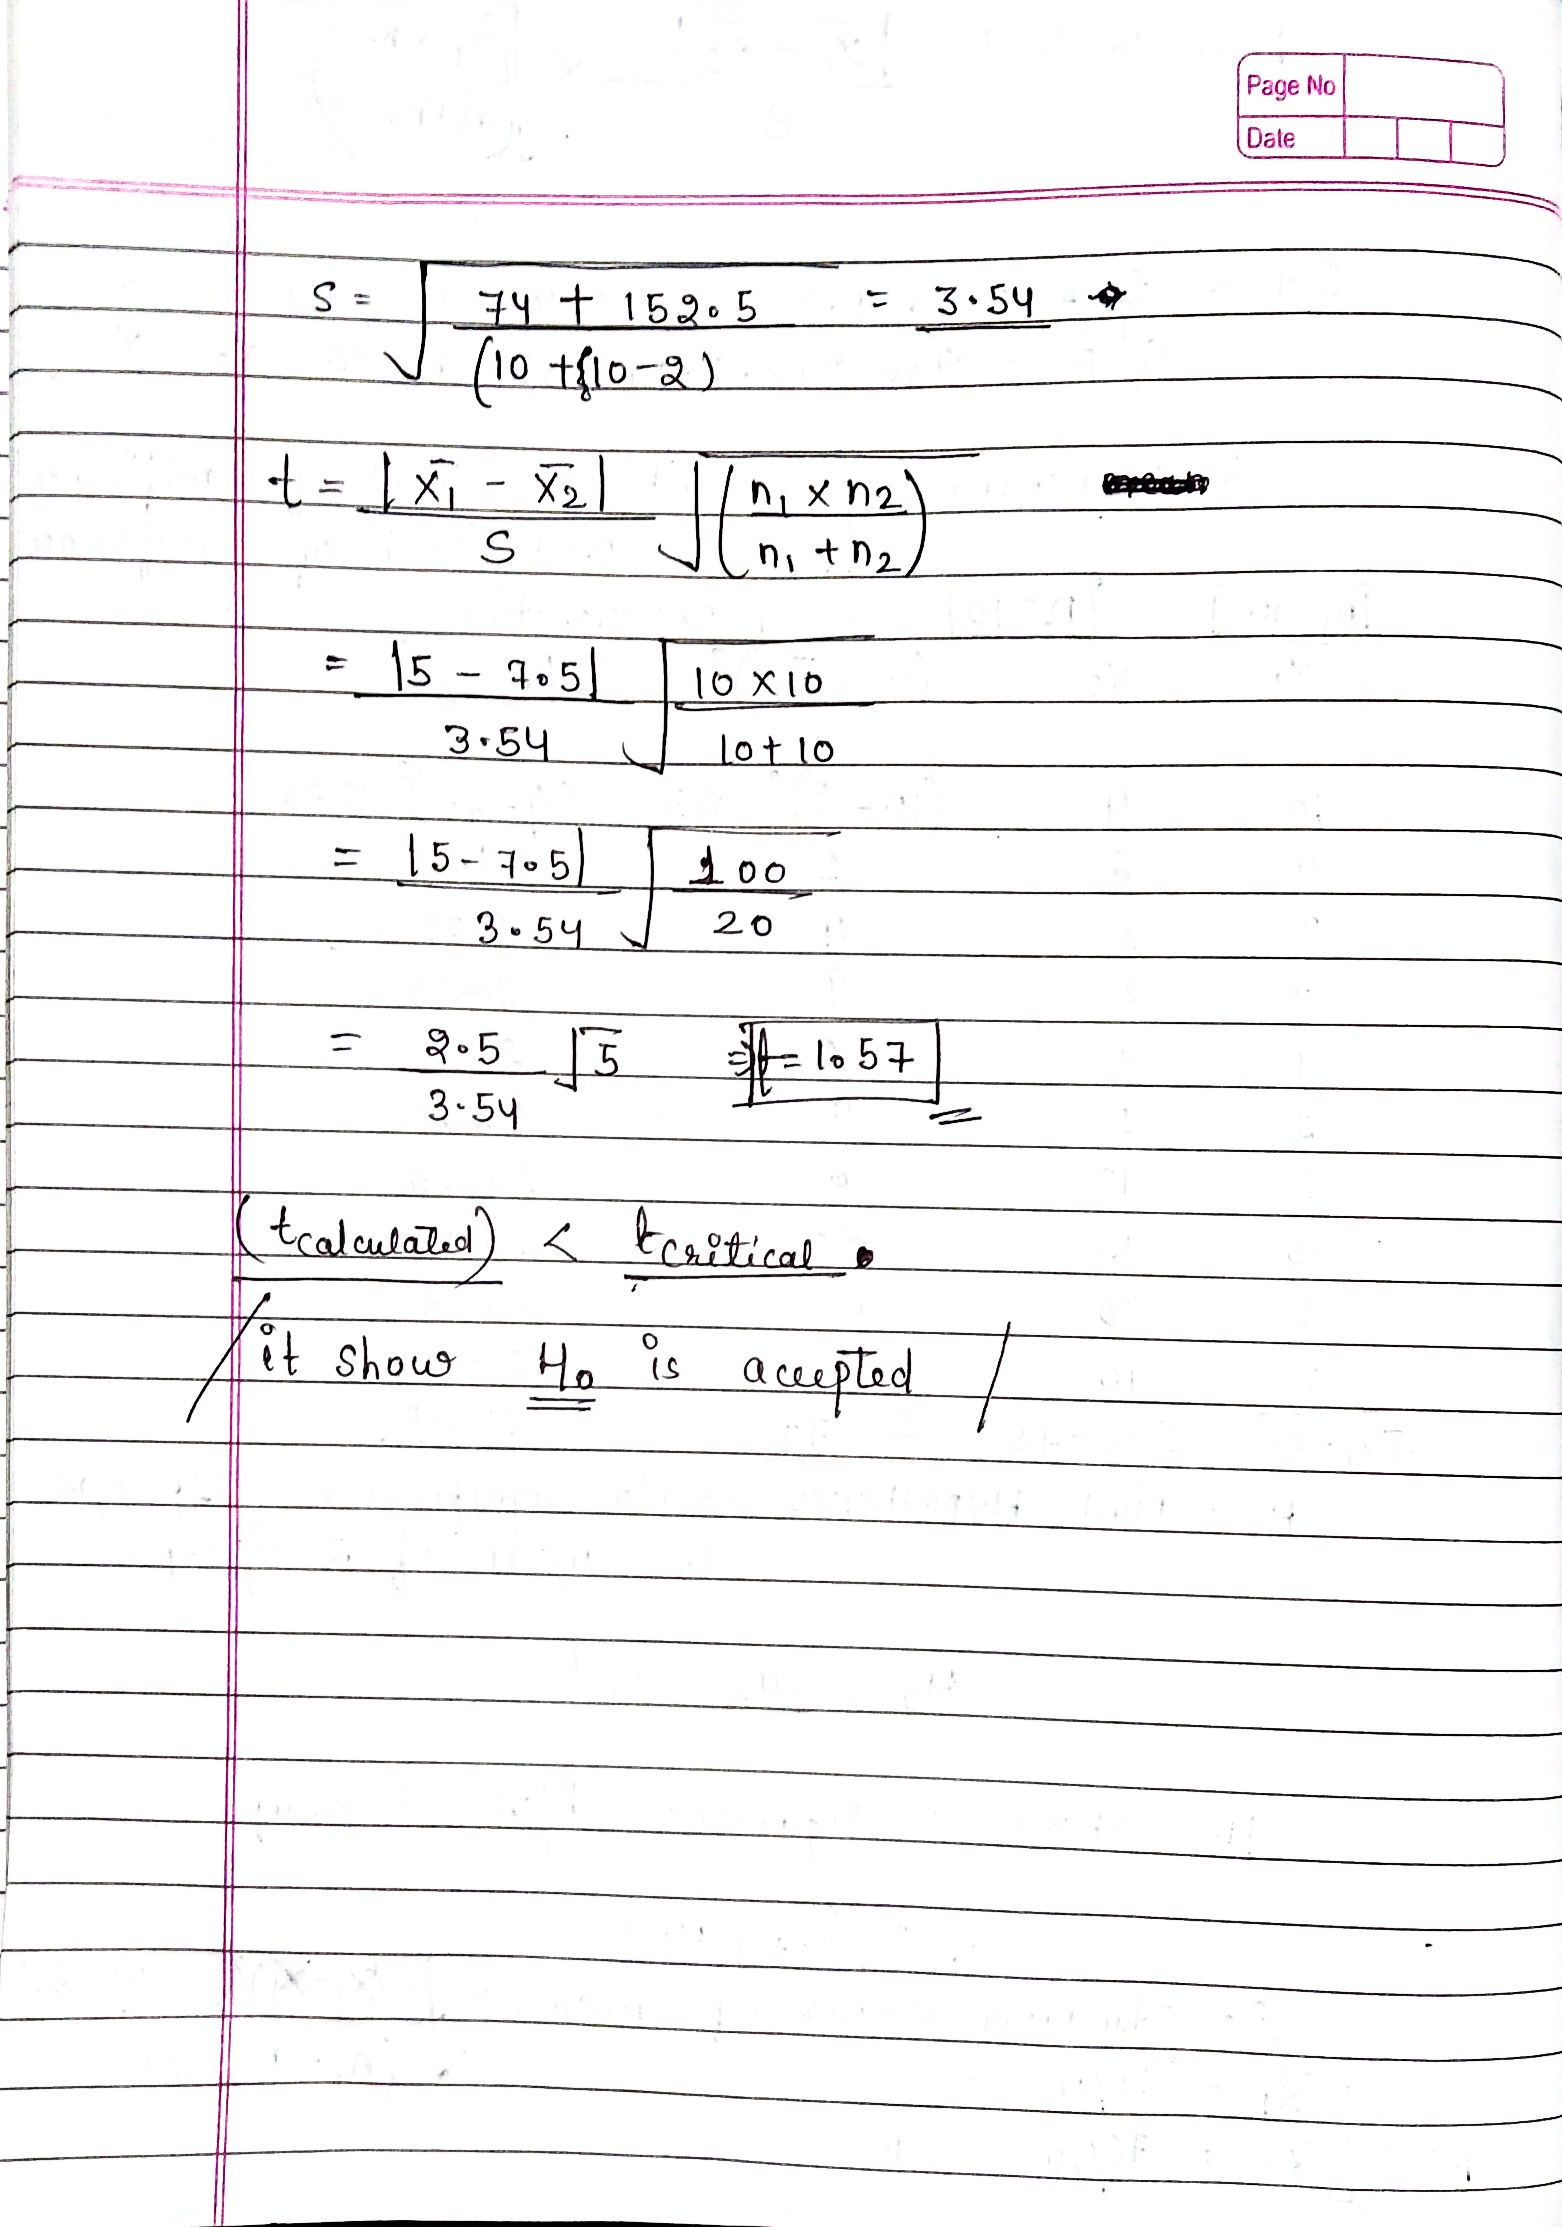 Page No
Date
S = √(74 + 152.5 / (10 + 10 - 2)) = 3.54
t = |x̄₁ - x̄₂| / S √(n₁ × n₂ / n₁ + n₂)
= |5 - 7.5| / 3.54 √(10 × 10 / 10 + 10)
= |5 - 7.5| / 3.54 √(100 / 20)
= 2.5 / 3.54 √5 ⇒ t = 1.57
(tcalculated) < tcritical.
it show H₀ is accepted